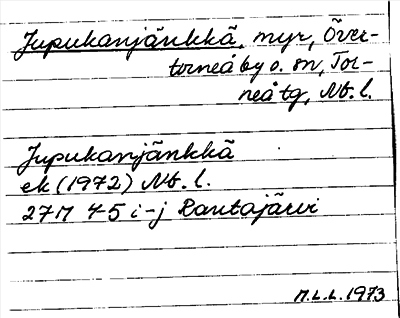 Jupukanjänkkä, myr, Över-
torneå by o. sn, Tor-
neå tg, Nb. l.
Jupukanjänkkä
ek (1972) Nb. l.
27M 4-5 i-j Rautajärvi
M.L.L. 1973